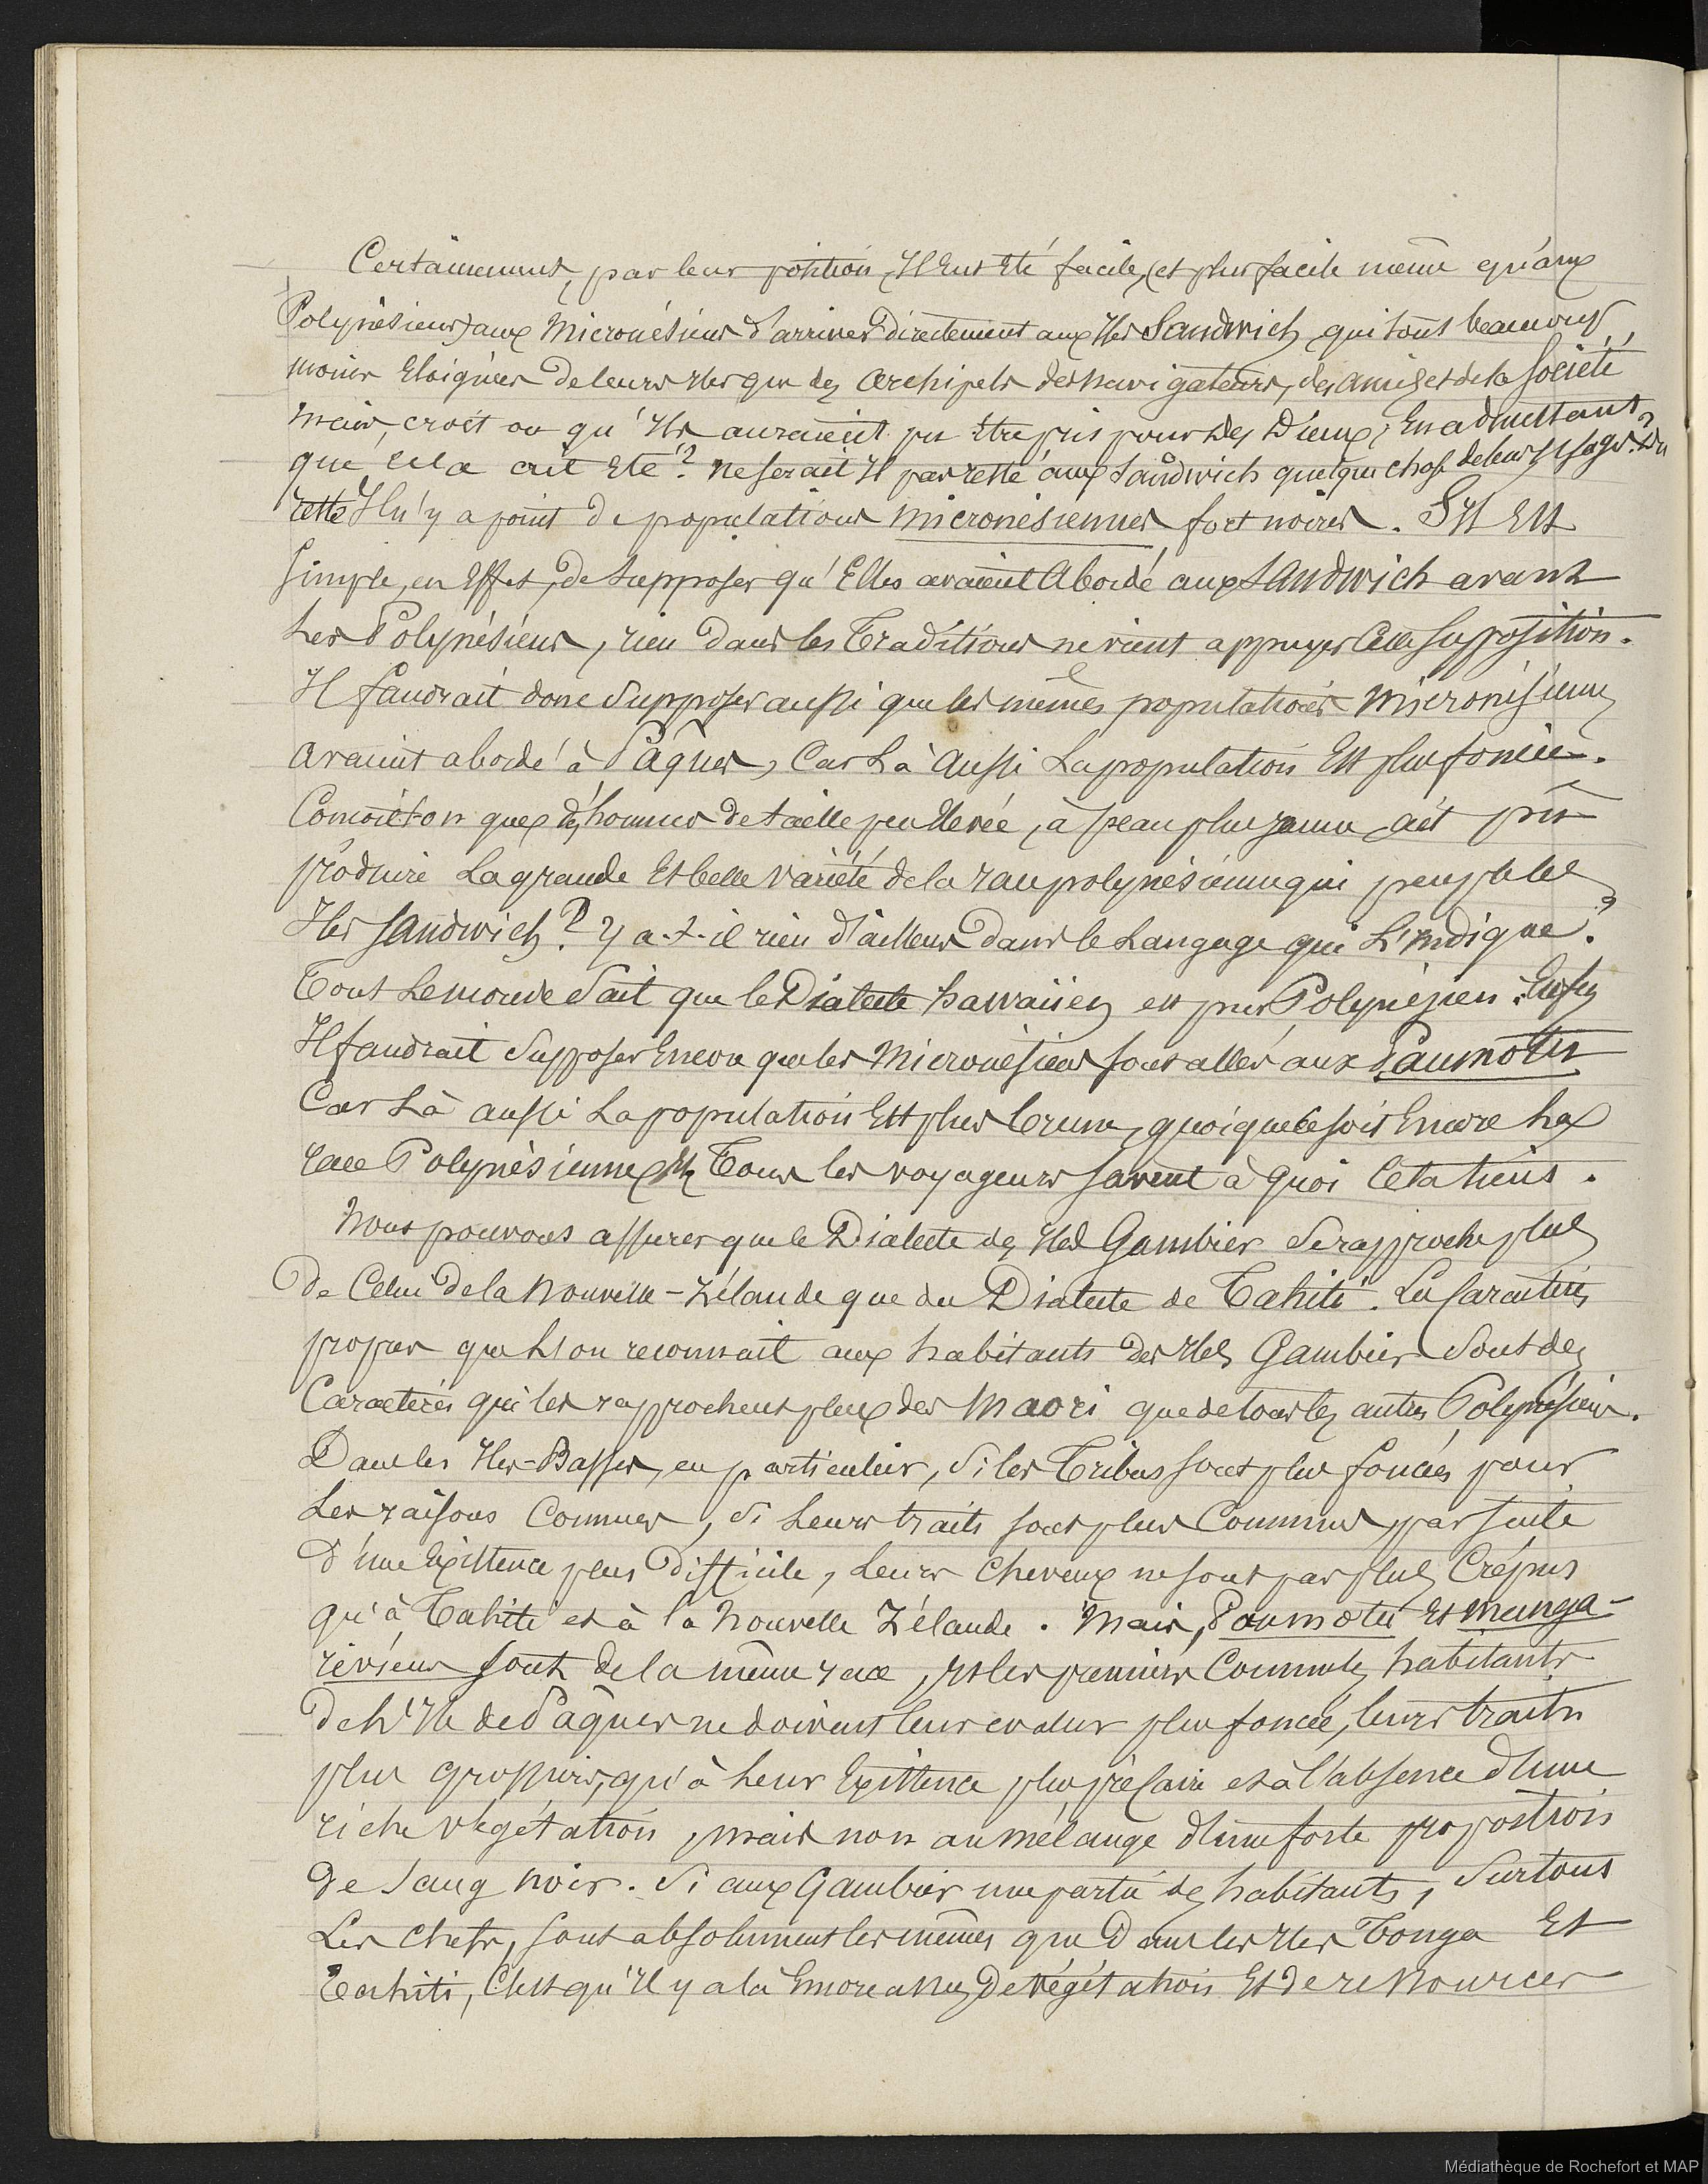 Certainement, par leur position, Il Eut Eté facile, (et plus facile même qu'aux
Polynésiens) aux Micronésiens d'arriver Directement aux Iles Sandwich, qui sont beaucoup
moins Eloignées De leurs Iles que des Archipels des navigateurs, des amis et de la Société
Mais, croit on qu'Ils auraient pu être pris pour des Dieux; En admettant
que cela ait Eté? Ne serait Il pas resté aux Sandwich quelque chose de leurs Usages? Du
reste Il n'y a point De populations Micronésiennes fort noires. S'Il Est
Simple, en Effet, De Supposer qu'Elles avaient Abordé aux Sandwich avant
Les Polynésiens, rien Dans les Traditions ne vient appuyer Cette Supposition.
Il faudrait donc Supposer aussi que les mêmes populations Micronésiennes
avaient abordé à Pâques, Car Là Aussi La population Est plus foncée.
Conçoit-on que des hommes de taille peu Elevée, à peau plus jaune, ait pû
produire La grande Et belle variété de la race polynésienne qui peuple les
Iles Sandwich? Y a-t-il rien d'ailleurs Dans le Langage qui L'Indique?
Tout Le monde Sait que le Dialecte hawaiien est pur Polynésien. Enfin
Il faudrait Supposer Encore que les Micronésiens sont allés aux Paumotu
Car Là aussi La population Est plus brune, quoique ce soit Encore La
race Polynésienne, Et Tous les voyageurs savent à quoi Cela tient.
Nous pouvons assurer que le Dialecte des Iles Gambier Se rapproche plus
De Celui De la Nouvelle-Zélande que du Dialecte de Tahiti. Les Caractères
propres que L'on reconnait aux habitants Des Iles Gambier Sont des
Caractères qui les rapprochent plus des Maori que de tous les autres Polynésiens.
Dans les Iles-Basses, en particulier, Si les Tribus sont plus foncées pour
Les raisons Connues, Si Leurs traits sont plus Communs par suite
d'une Existence plus Difficile, Leurs Cheveux ne sont pas plus Crépus
qu'à Tahiti et à la Nouvelle Zélande. Mais, Paumotu Et Manga-
réviens sont de la même race, Et les premiers Comme les habitants
De L'Ile de Pâques ne doivent leur couleur plus foncée, leurs traits
plus grossiers, qu'à Leur Existence plus précaire et à l'absence d'une
riche végétation, mais non au mélange d'une forte proportion
De Sang Noir. Si aux Gambier une partie des habitants, Surtout
Les Chefs, sont absolument les mêmes que Dans les Iles Tonga Et
Tahiti, C'est qu'Il y a là Encore assez De végétation Et De ressources
Médiathèque de Rochefort et MAP